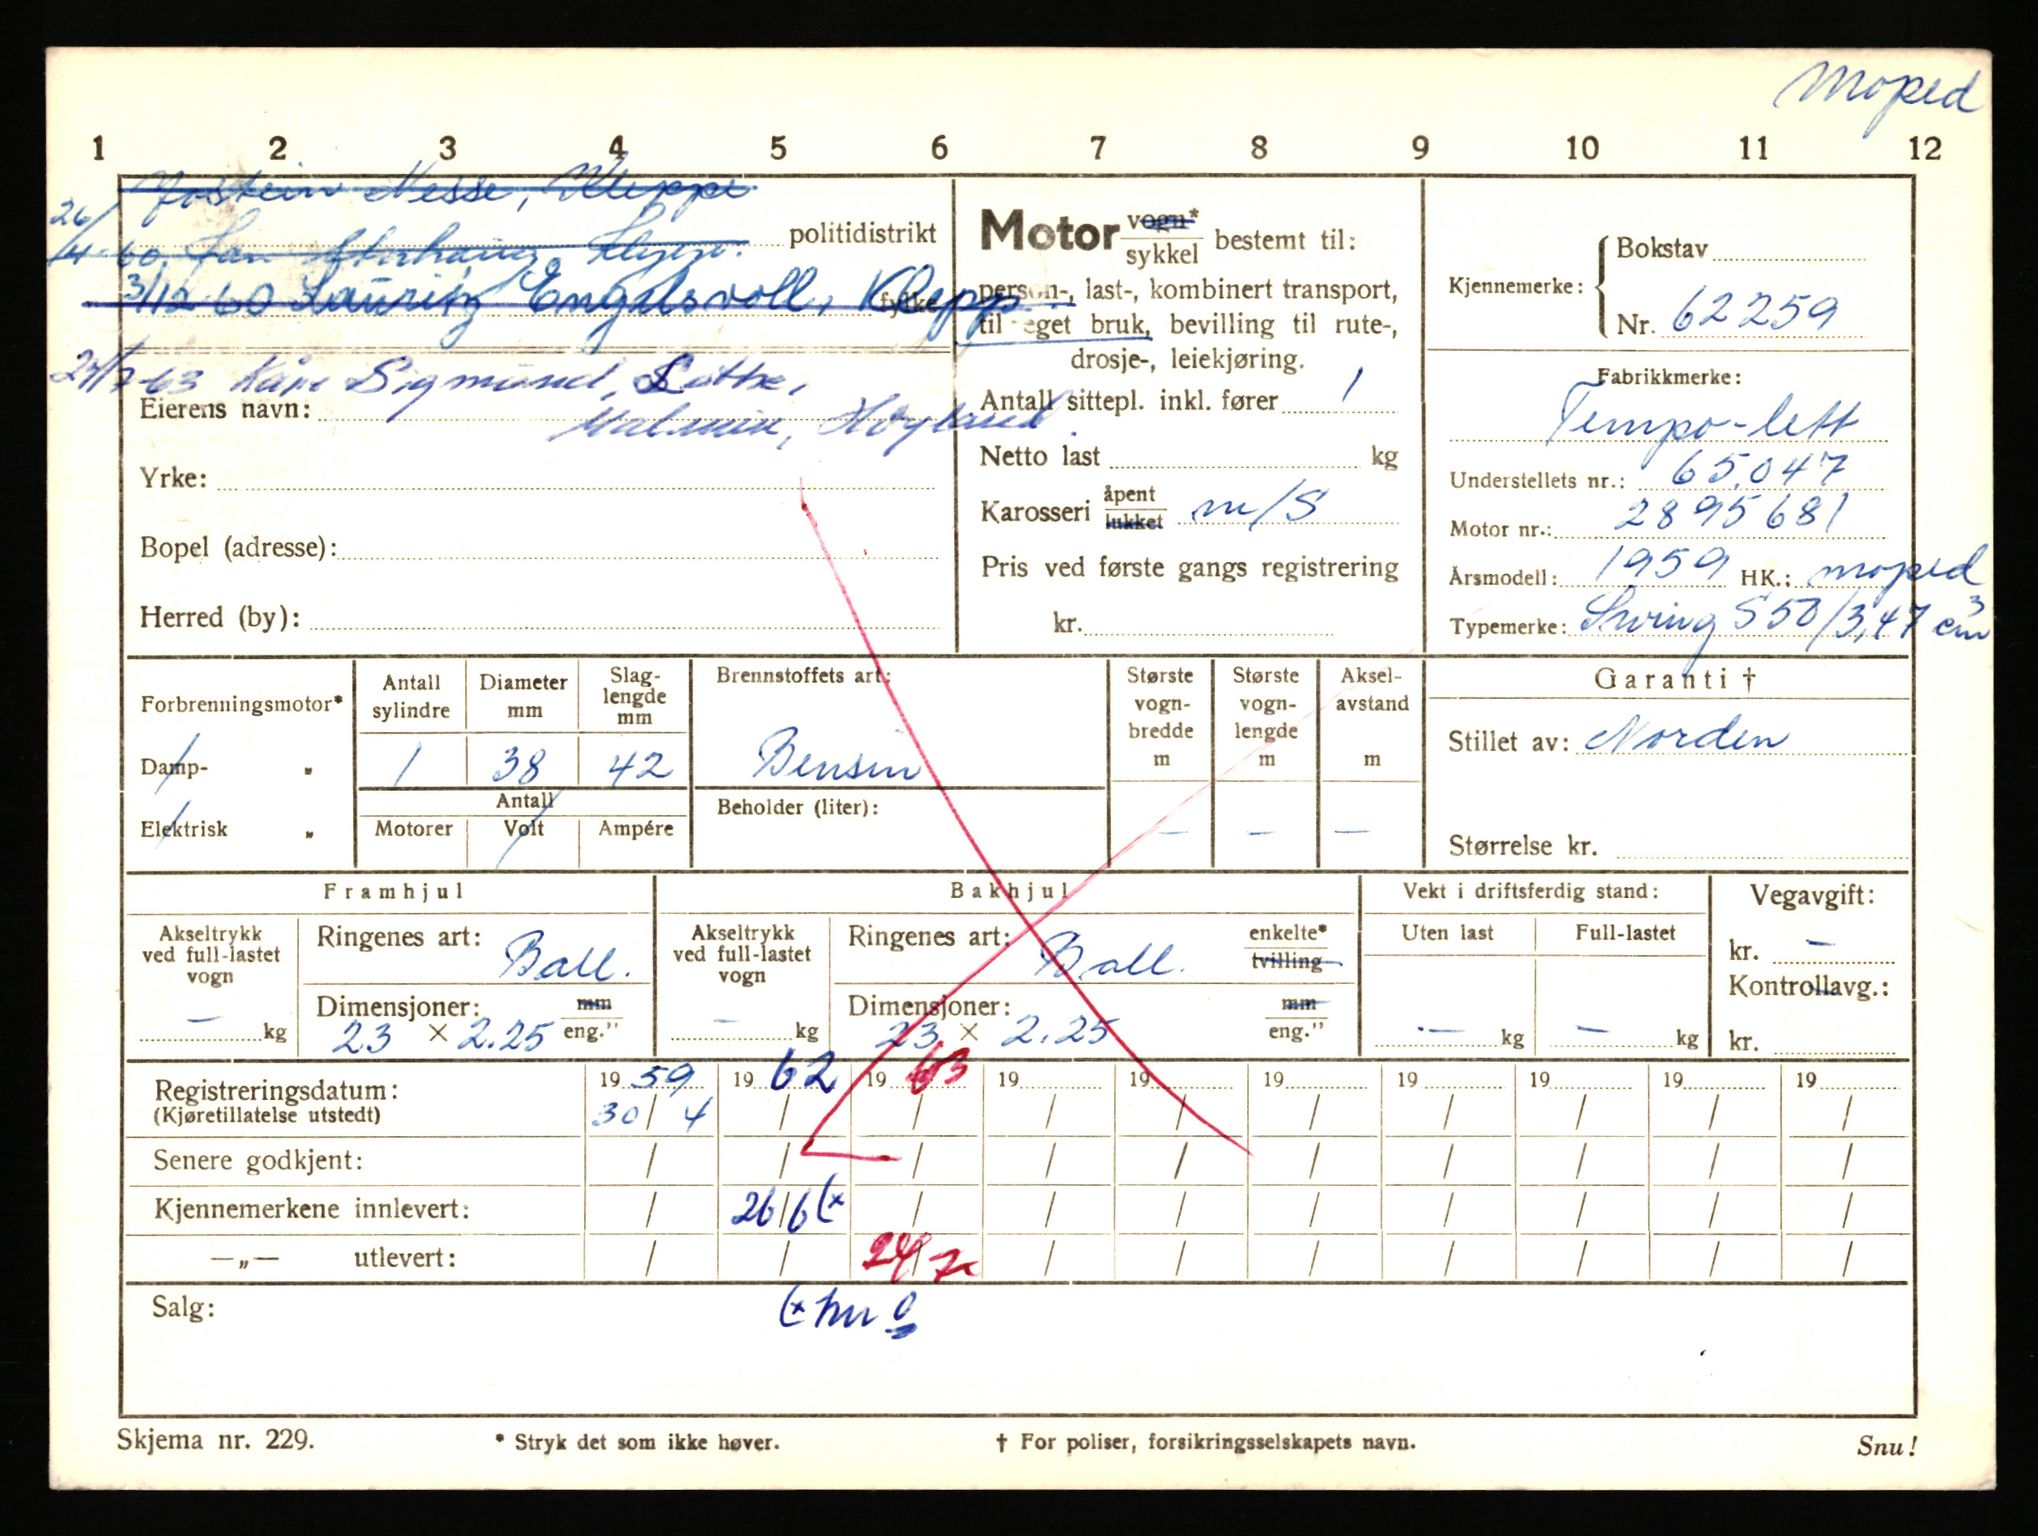 Moped
1 2 3 4 5 6 7 8 9 10 11 12
Jostein Nesse, Kleppe
26/4-60. Jan Kleppe.
politidistrikt
3/12 60 Lauritz Engelsvoll, Klepp
fylke
24/7-63 Kåre Sigmund
Eierens navn: Malmin, Høyland.
Yrke:
Bopel (adresse):
Herred (by):
Motor vogn* / sykkel bestemt til:
person-, last-, kombinert transport,
til eget bruk, bevilling til rute-,
drosje-, leiekjøring.
Antall sittepl. inkl. fører 1
Netto last kg
Karosseri åpent / lukket m/S
Pris ved første gangs registrering
kr.
Kjennemerke: Bokstav
Nr. 62259
Fabrikkmerke:
Tempo-lett
Understellets nr.: 65.047
Motor nr.: 2895681
Årsmodell: 1959 HK.: moped
Typemerke: Swing S50/3,47 cm³
Forbrenningsmotor*
Damp- „
Elektrisk „
Antall sylindre 1
Diameter mm 38
Slag-lengde mm 42
Antall
Motorer Volt Ampére
Brennstoffets art:
Bensin
Beholder (liter):
Største vogn-bredde m —
Største vogn-lengde m —
Aksel-avstand m —
Garanti †
Stillet av: Norden
Størrelse kr.
Framhjul
Akseltrykk ved full-lastet vogn — kg
Ringenes art: Ball.
Dimensjoner: mm
23 × 2.25 eng."
Bakhjul
Akseltrykk ved full-lastet vogn — kg
Ringenes art: Ball. enkelte* / tvilling
Dimensjoner: mm
23 × 2.25 eng."
Vekt i driftsferdig stand:
Uten last — kg
Full-lastet — kg
Vegavgift:
kr. —
Kontrollavg.:
kr.
Registreringsdatum: 19 59 19 62 19 63 19 19 19 19 19 19 19
(Kjøretillatelse utstedt) 30/4 / / / / / / / / /
Senere godkjent: / / / / / / / / / /
Kjennemerkene innlevert: / 26/6 (x / / / / / / / /
—„— utlevert: / / 24/7 / / / / / / /
Salg: (x
Skjema nr. 229. * Stryk det som ikke høver. † For poliser, forsikringsselskapets navn. Snu!